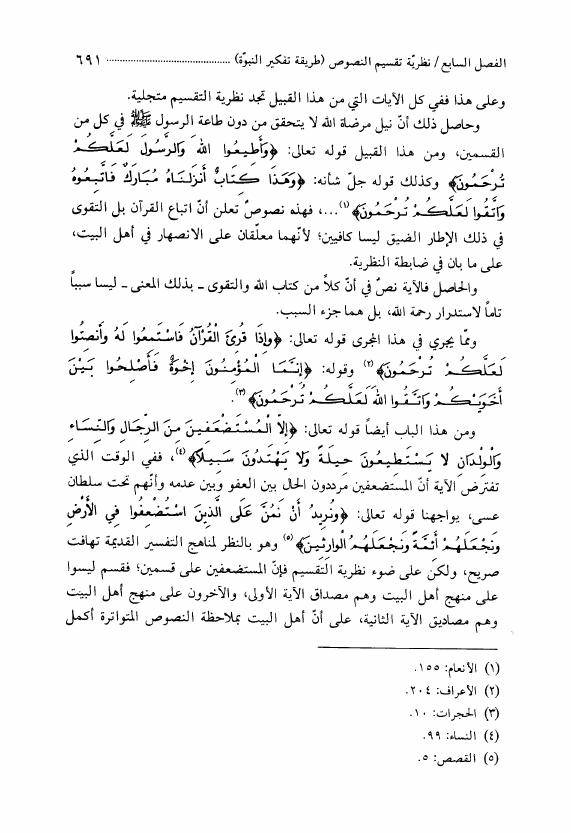 الفصل السابع/ نظريّة تقسيم النصوص (طريقة تفكير النبوّة) ................................................ ٦٩١
وعلى هذا ففي كل الآيات التي من هذا القبيل تجد نظرية التقسيم متجلية.
وحاصل ذلك أنّ نيل مرضاة الله لا يتحقق من دون طاعة الرسول ﷺ في كل من
القسمين، ومن هذا القبيل قوله تعالى: ﴿وَأَطِيعُوا اللهَ وَالرَّسُولَ لَعَلَّكُمْ
تُرْحَمُونَ﴾ وكذلك قوله جلّ شأنه: ﴿وَهَذَا كِتَابٌ أَنزَلْنَاهُ مُبَارَكٌ فَاتَّبِعُوهُ
وَاتَّقُوا لَعَلَّكُمْ تُرْحَمُونَ﴾(١)...، فهذه نصوصٌ تعلن أنّ اتباع القرآن بل التقوى
في ذلك الإطار الضيق ليسا كافيين؛ لأنّهما معلّقان على الانصهار في أهل البيت،
على ما بان في ضابطة النظرية.
والحاصل فالآية نصٌ في أنّ كلاً من كتاب الله والتقوى ـ بذلك المعنى ـ ليسا سبباً
تاماً لاستدرار رحمة الله، بل هما جزء السبب.
وممّا يجري في هذا المجرى قوله تعالى: ﴿وَإِذَا قُرِئَ الْقُرْآنُ فَاسْتَمِعُوا لَهُ وَأَنصِتُوا
لَعَلَّكُمْ تُرْحَمُونَ﴾(٢) وقوله: ﴿إِنَّمَا الْمُؤْمِنُونَ إِخْوَةٌ فَأَصْلِحُوا بَيْنَ
أَخَوَيْكُمْ وَاتَّقُوا اللهَ لَعَلَّكُمْ تُرْحَمُونَ﴾(٣).
ومن هذا الباب أيضاً قوله تعالى: ﴿إِلاَّ الْمُسْتَضْعَفِينَ مِنَ الرِّجَالِ وَالنِّسَاءِ
وَالْوِلْدَانِ لا يَسْتَطِيعُونَ حِيلَةً وَلا يَهْتَدُونَ سَبِيلاً﴾(٤)، ففي الوقت الذي
تفترض الآية أنّ المستضعفين مرددون الحال بين العفو وبين عدمه وأنّهم تحت سلطان
عسى، يواجهنا قوله تعالى: ﴿وَنُرِيدُ أَنْ نَمُنَّ عَلَى الَّذِينَ اسْتُضْعِفُوا فِي الأَرْضِ
وَنَجْعَلَهُمْ أَئِمَّةً وَنَجْعَلَهُمُ الْوَارِثِينَ﴾(٥) وهو بالنظر لمناهج التفسير القديمة تهافت
صريح، ولكن على ضوء نظرية التقسيم فإنّ المستضعفين على قسمين؛ فقسم ليسوا
على منهج أهل البيت وهم مصداق الآية الأولى، والآخرون على منهج أهل البيت
وهم مصاديق الآية الثانية، على أنّ أهل البيت بملاحظة النصوص المتواترة أكمل
(١) الأنعام: ١٥٥.
(٢) الأعراف: ٢٠٤.
(٣) الحجرات: ١٠.
(٤) النساء: ٩٩.
(٥) القصص: ٥.